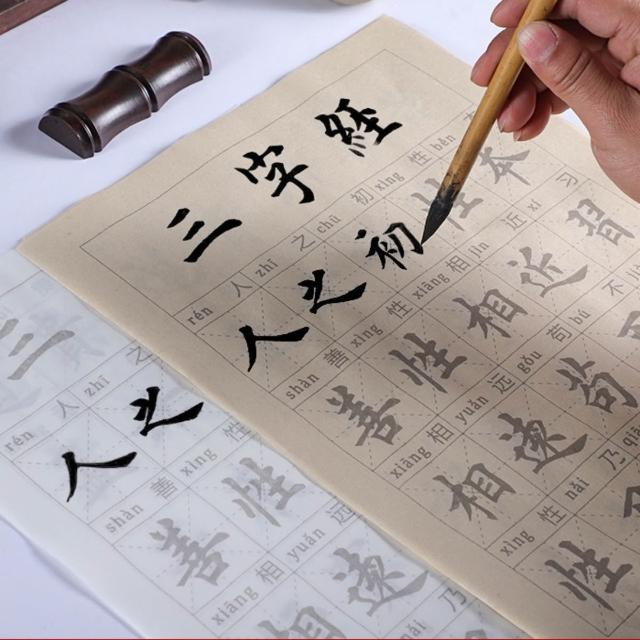 三字經
rén 人 zhī 之 chū 初 xìng 性 běn 本
人之初性本
shàn 善 xìng 性 xiāng 相 jìn 近 xí 习
善性相近習
xiāng 相 yuǎn 远 gǒu 苟 bú 不
相遠苟
xìng 性 nǎi 乃
性
三
rén 人 zhī 之
人之
shàn 善 xìng 性
善性
xiāng 相 yuǎn 远
相遠
乃